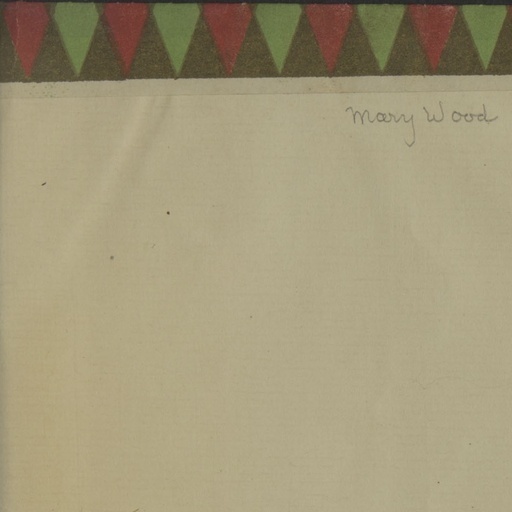 Mary Wood